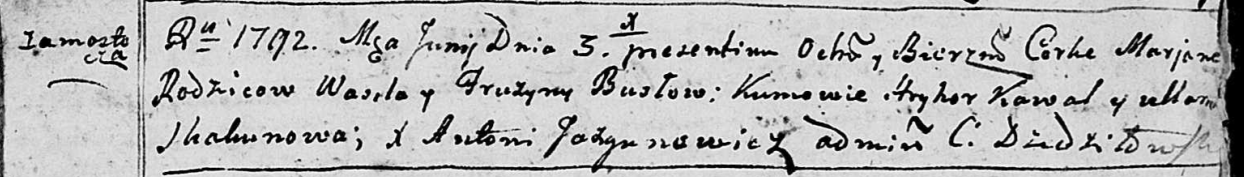 Zamosto
cza
Ru 1792. Mca Junij Dnia 3. x presentium Ochr̃ y Bierzm̃ Corke Marjane
Rodzicow Wasila y Fruzyny Busłow: Kumowie Hryhor Kawal y
Skakunowa; x Antoni Jazgunowicz admiñ C. Dziedziłow